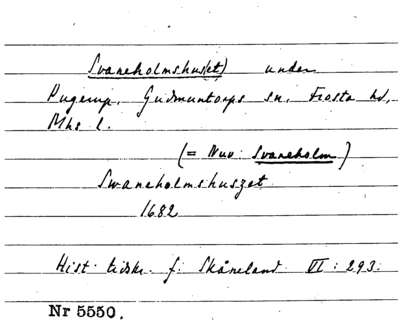 Svaneholmshus(et) under
Pugerup, Gudmuntorps sn, Frosta hd,
Mhs l.
(= Nuv. Svaneholm)
Swaneholmshuszet
1682
Hist. tidskr. f. Skåneland VI: 293.
Nr 5550.